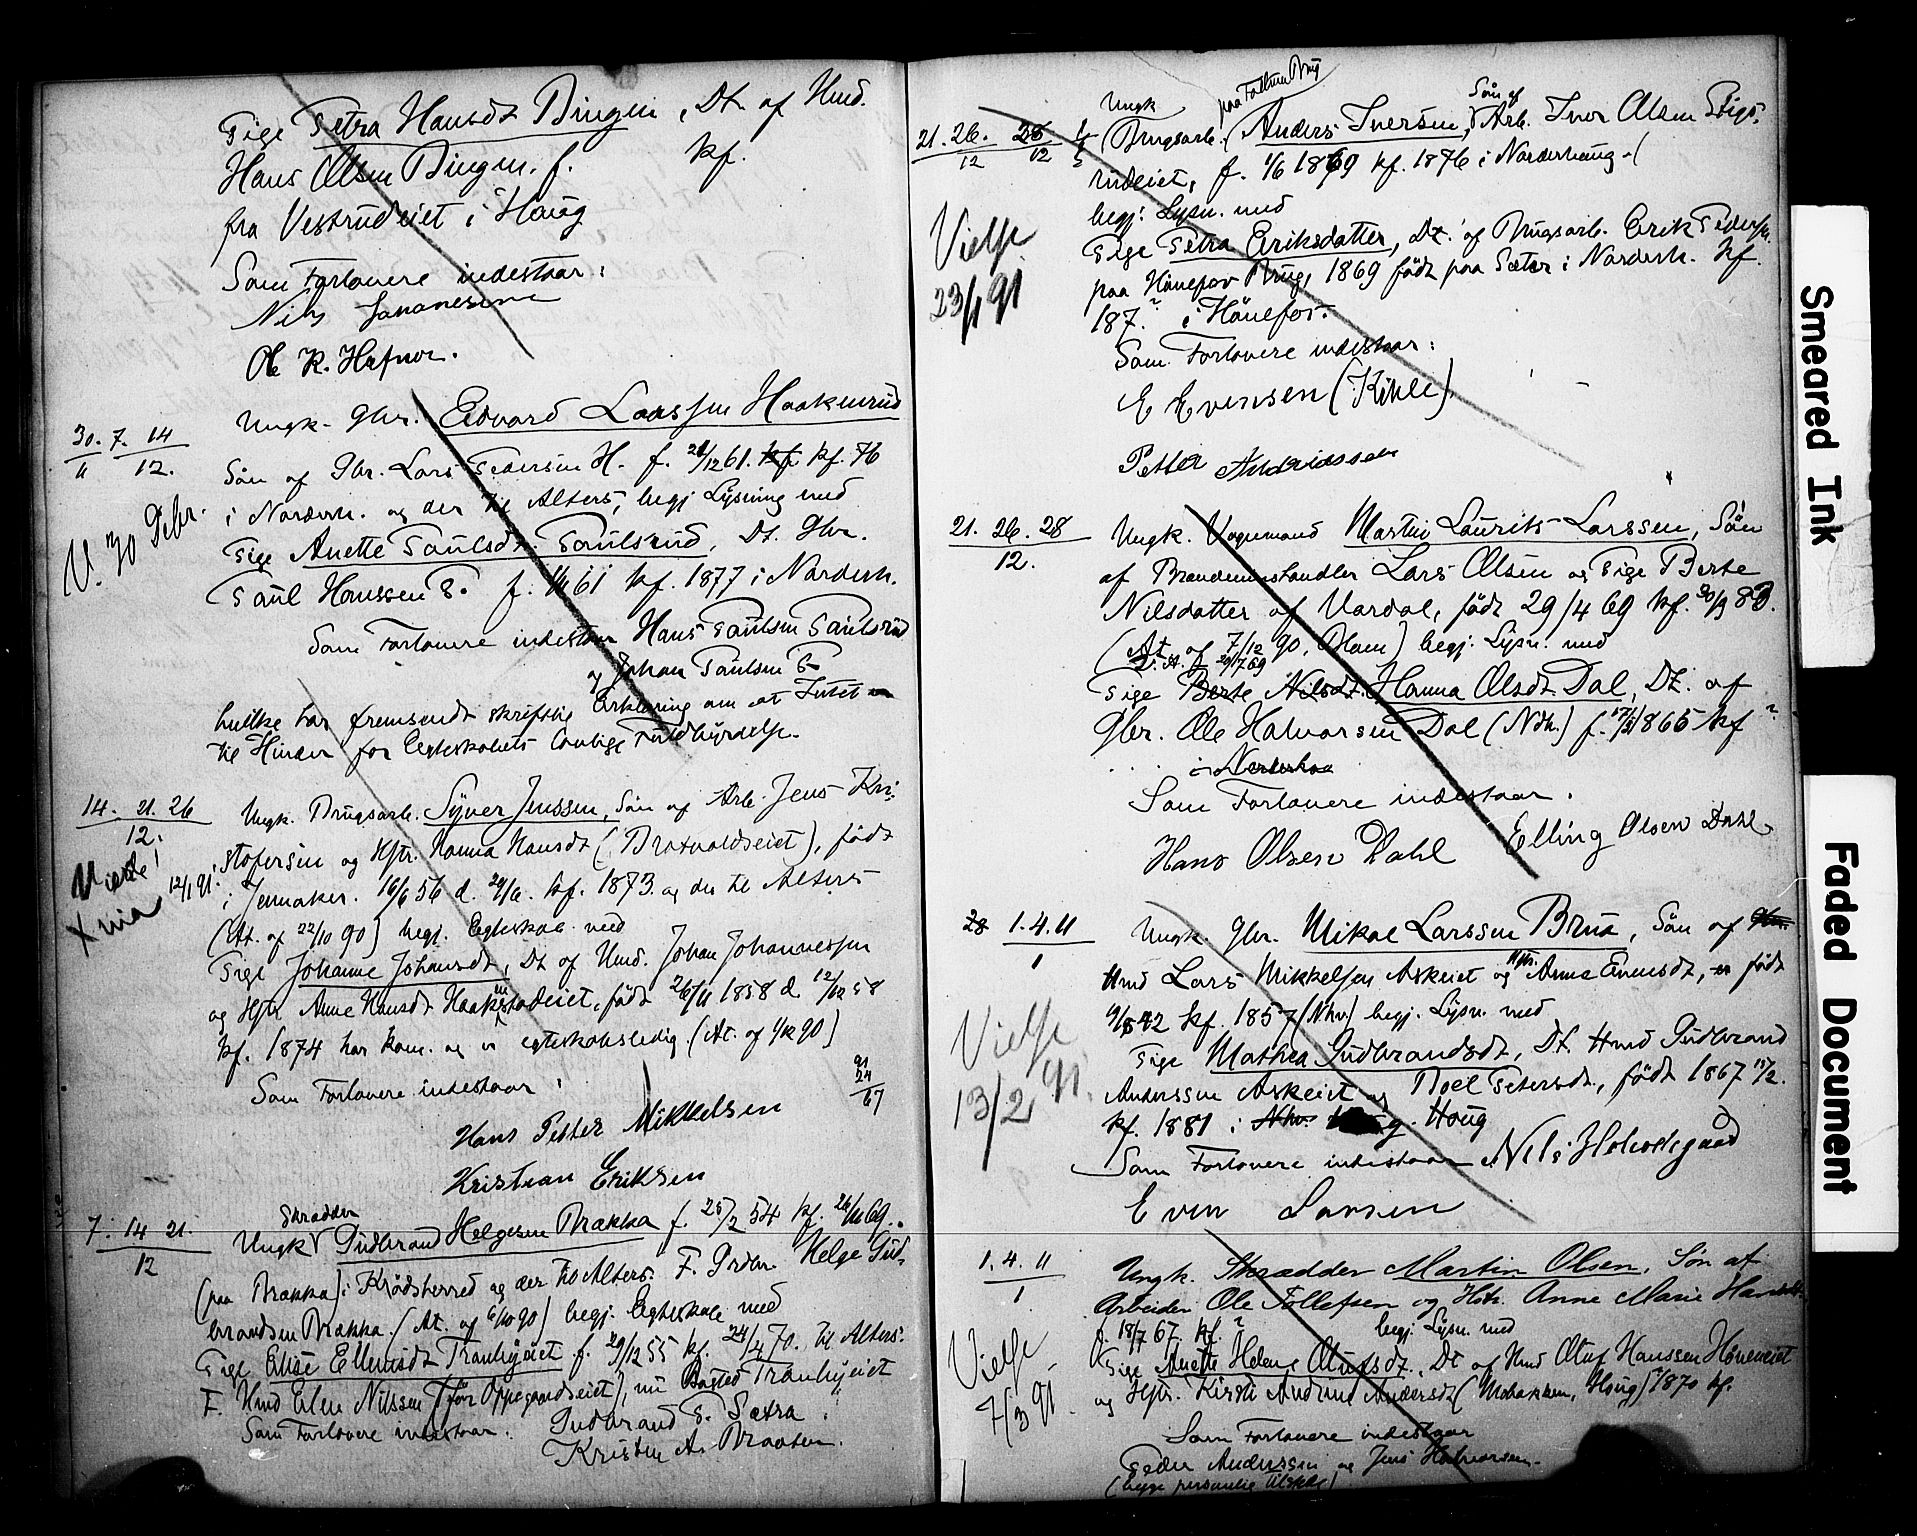 Pige Petra Hansdt Bingen, Dt. af Husd.
Hans Olsen Bingen. f. kf.
fra Vestrudeiet i Houg
Som Forlovere indestaar:
Nils Johanesen
Ole K. Hafnor.
30. 7. 14
11 12.
V. 30 Debr.
Ungk. Gbr. Edvard Larssen Haakenrud
Søn af Gbr. Lars Pedersen H. f. 12 61. kf. kf. 76
i Norderh. og der til Alters, begj Lysning med
Pige Anette Paulsdt. Paulsrud, Dt. Gbr.
Paul Hanssen P. f. 61 kf. 1877 i Norderh.
Som Forlovere indestaar Hans Paulsen Paulsrud
og Johan Paulsen P
hvilke har fremsendt skriftlig Erklæring om at Intet er
til Hinder for Egteskabets lovlige Fuldbyrdelse.
14. 21. 26
12.
Viede!
12/1 91.
Ungk. Brugsarb. Syver Jenssen, Søn af Arb. Jens Kri-
stofersen og Hstr. Hanna Hansdt (Bratvoldseiet), født
i Jevnaker. 16/6 56 d. 29/6. kf. 1873. og der til Alters
(At. af 22/10 90) begj. Egteskab med
Pige Johanne Johansdt, Dt af Husd. Johan Johannessen
og Hstr Anne Hansdt Haakenstadeiet, født 26/11 1858 d 12/12 58
kf. 1874 har kom. og er egteskabsledig. (At. af 1/12 90)
91
24
67
Som Forlovere indestaar:
Hans Petter Mikkelsen
Kristian Eriksen
7. 14 21.
12
Skrædder
Ungk Gudbrand Helgesen Brækka f. 25/2 54 kf. 69.
(paa Brækka) i Krødsherred og der til Alters. F. Grdbr. Helge Gud-
brandsen Brækka. (At. af 6/10 90) begj. Egteskab med
Pige Elise Ellensdt Tranbyeiet f. 29/12 55 kf. 24/4 70. til Alters.
F. Husd Elen Nilssen (før Oppegaardseiet), nu Bosted Tranbyeiet
Som Forlovere indestaar. Gudbrand P. Sætra.
Kristen A. Braaten.
21. 26. 28
12 12
Vielse
23/1 91
Ungk paa Follum Brug Søn af
Brugsarb. Anders Iversen, Arb. Iver Olsen Stigs-
rudeiet, f. 1/6 1869 kf. 1876 i Norderhoug.
begj: Lysn. med
Pige Petra Eriksdatter, Dt. af Brugsarb. Erik Peders.
paa Hønefos Brug, 1869 født paa Sæter i Norderh. kf.
187.? i Hønefos.
Som Forlovere indestaar:
E Evensen (Kihle)
Petter Andriassen
21. 26. 28
12.
Ungk. Vognmand Martin Laurits Larssen, Søn
af Brændevinshandler Lars Olsen og Pige Berte
Nilsdatter af Vardal, født 29/4 69 kf. 30/9 83.
(At. af 7/12 90, Olsen) begj. Lysn. med
Pige Berte Nilsdt. Hanna Olsdt Dal, Dt. af
Gbr. Ole Halvorsen Dal (Ndh.) f. 1865 kf?
i Norderho
Som Forlovere indestaar.
Hans Olsen Dahl Elling Olsen Dahl
28 1. 4. 11
1
Vielse
13/2 91.
Ungk. Gbr. Mikal Larssen Brua, Søn af Gbr.
Husd Lars Mikkelsen Askeiet og Hstr. Anne Evensdt, er født
42 kf. 1857 (Nhv) begj. Lysn. med
Pige Mathea Gudbrandsdt, Dt. Husd Gudbrand
Anderssen Askeiet og Boel Petersdt, født 1867 15/2.
kf. 1881 i Nhv. Houg
Som Forlovere indestaar Nils Holvedsgaard
Even Larsen
1. 4. 11
1
Vielse
7/3 91.
Ungk. Skrædder Martin Olsen, Søn af
Arbeider Ole Tollefsen og Hstr. Anne Marie Hansdt.
f. 18/7 67. kf.? begj. Lysn. med
Pige Anette Helene Olufsdt., Dt af Husd Oluf Hanssen Høneneiet
og Hstr. Kirsti Andrine Andersdt (Mobakken, Houg) 1870 kf.
Som Forlovere indestaar
Peder Anderssen og Jens Halvorsen.
(begge personlig tilstede)
Smeared Ink
Faded Document